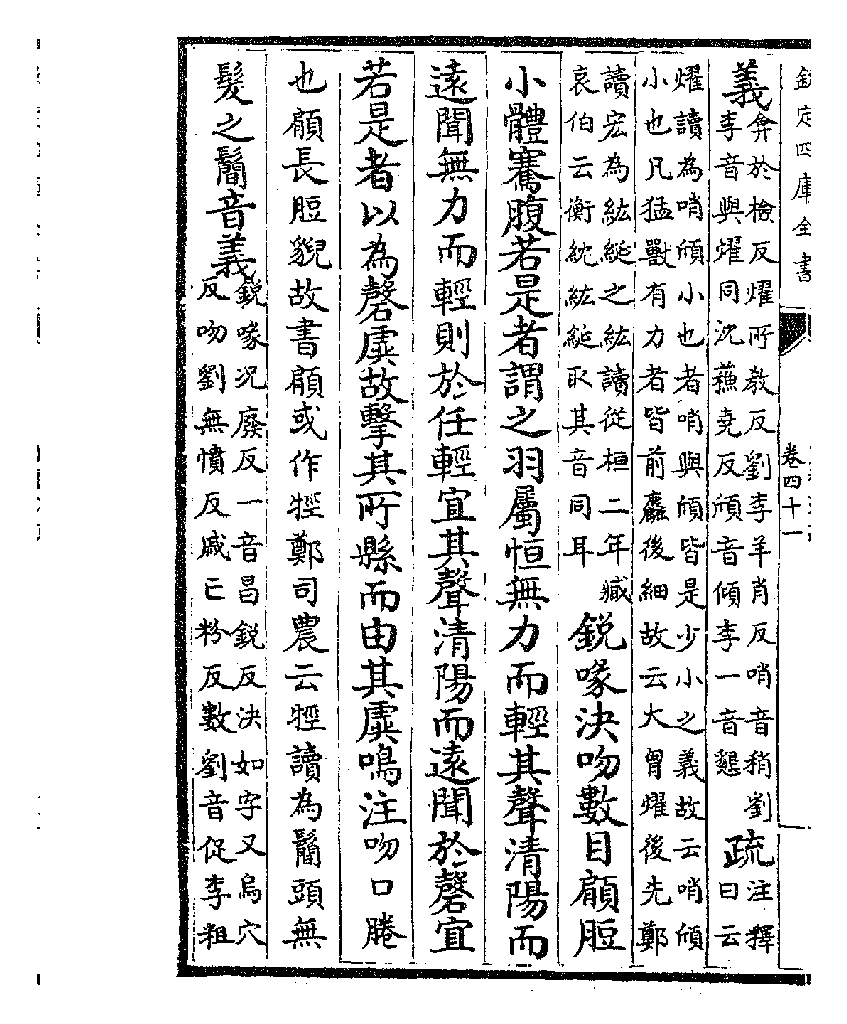 欽定四庫全書 卷四十一
義弇於檢反燿所教反劉李羊肖反哨音稍劉
李音與燿同沈蘓堯反頎音傾李一音懇
疏注釋
曰云
燿讀為哨頎小也者哨與頎皆是少小之義故云哨頎
小也凡猛獸有力者皆前麤後細故云大胷燿後先鄭
讀宏為紘綖之紘讀從桓二年臧
哀伯云衡紞紘綖取其音同耳
銳喙決吻數目顅脰
小體騫腹若是者謂之羽屬恒無力而輕其聲清陽而
遠聞無力而輕則於任輕宜其聲清陽而遠聞於磬宜
若是者以為磬虡故擊其所縣而由其虡鳴注吻口腃
也顅長脰貌故書顅或作牼鄭司農云牼讀為鬜頭無
髮之鬜音義銳喙况廢反一音昌銳反決如字又烏穴
反吻劉無憤反戚亡粉反數劉音促李粗